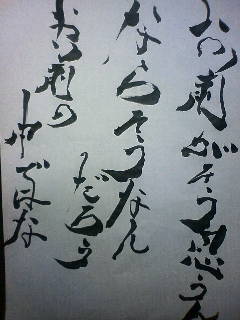 お前がそう思うん
ならそうなん
だろう
お前の
中ではな